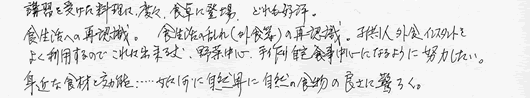 講習を受けた料理は、度々、食卓に登場、どれも好評。
食生活への再認識。 食生活の乱れ(外食等)の再認識。子供1人外食、インスタントも
よく利用するのでこれは出来るだけ、野菜中心、手作り自宅食事中心になるように努力したい。
身近な食材と効能……なに自然界に自然の食物の良さに驚ろく。